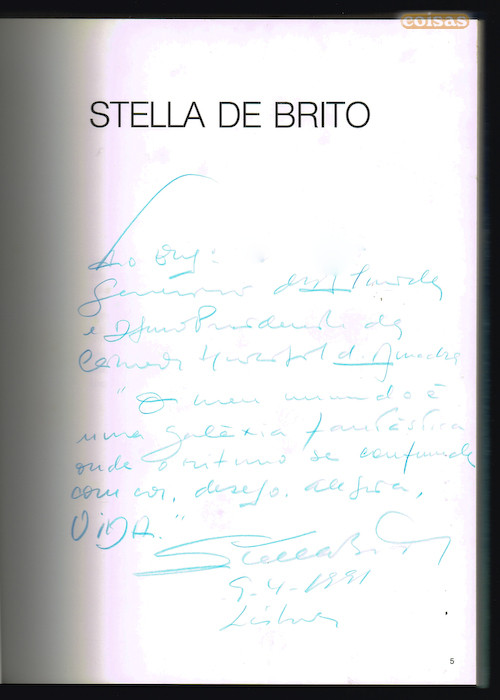 coisas
STELLA DE BRITO
Ao
e Presidente da
Câmara Municipal d. Amadora
"O meu mundo é
uma galáxia fantástica
onde o ritmo se confunde
com cor, desejo, alegria,
VIDA."
Stella Brito
9-4-1991
Lisboa
5